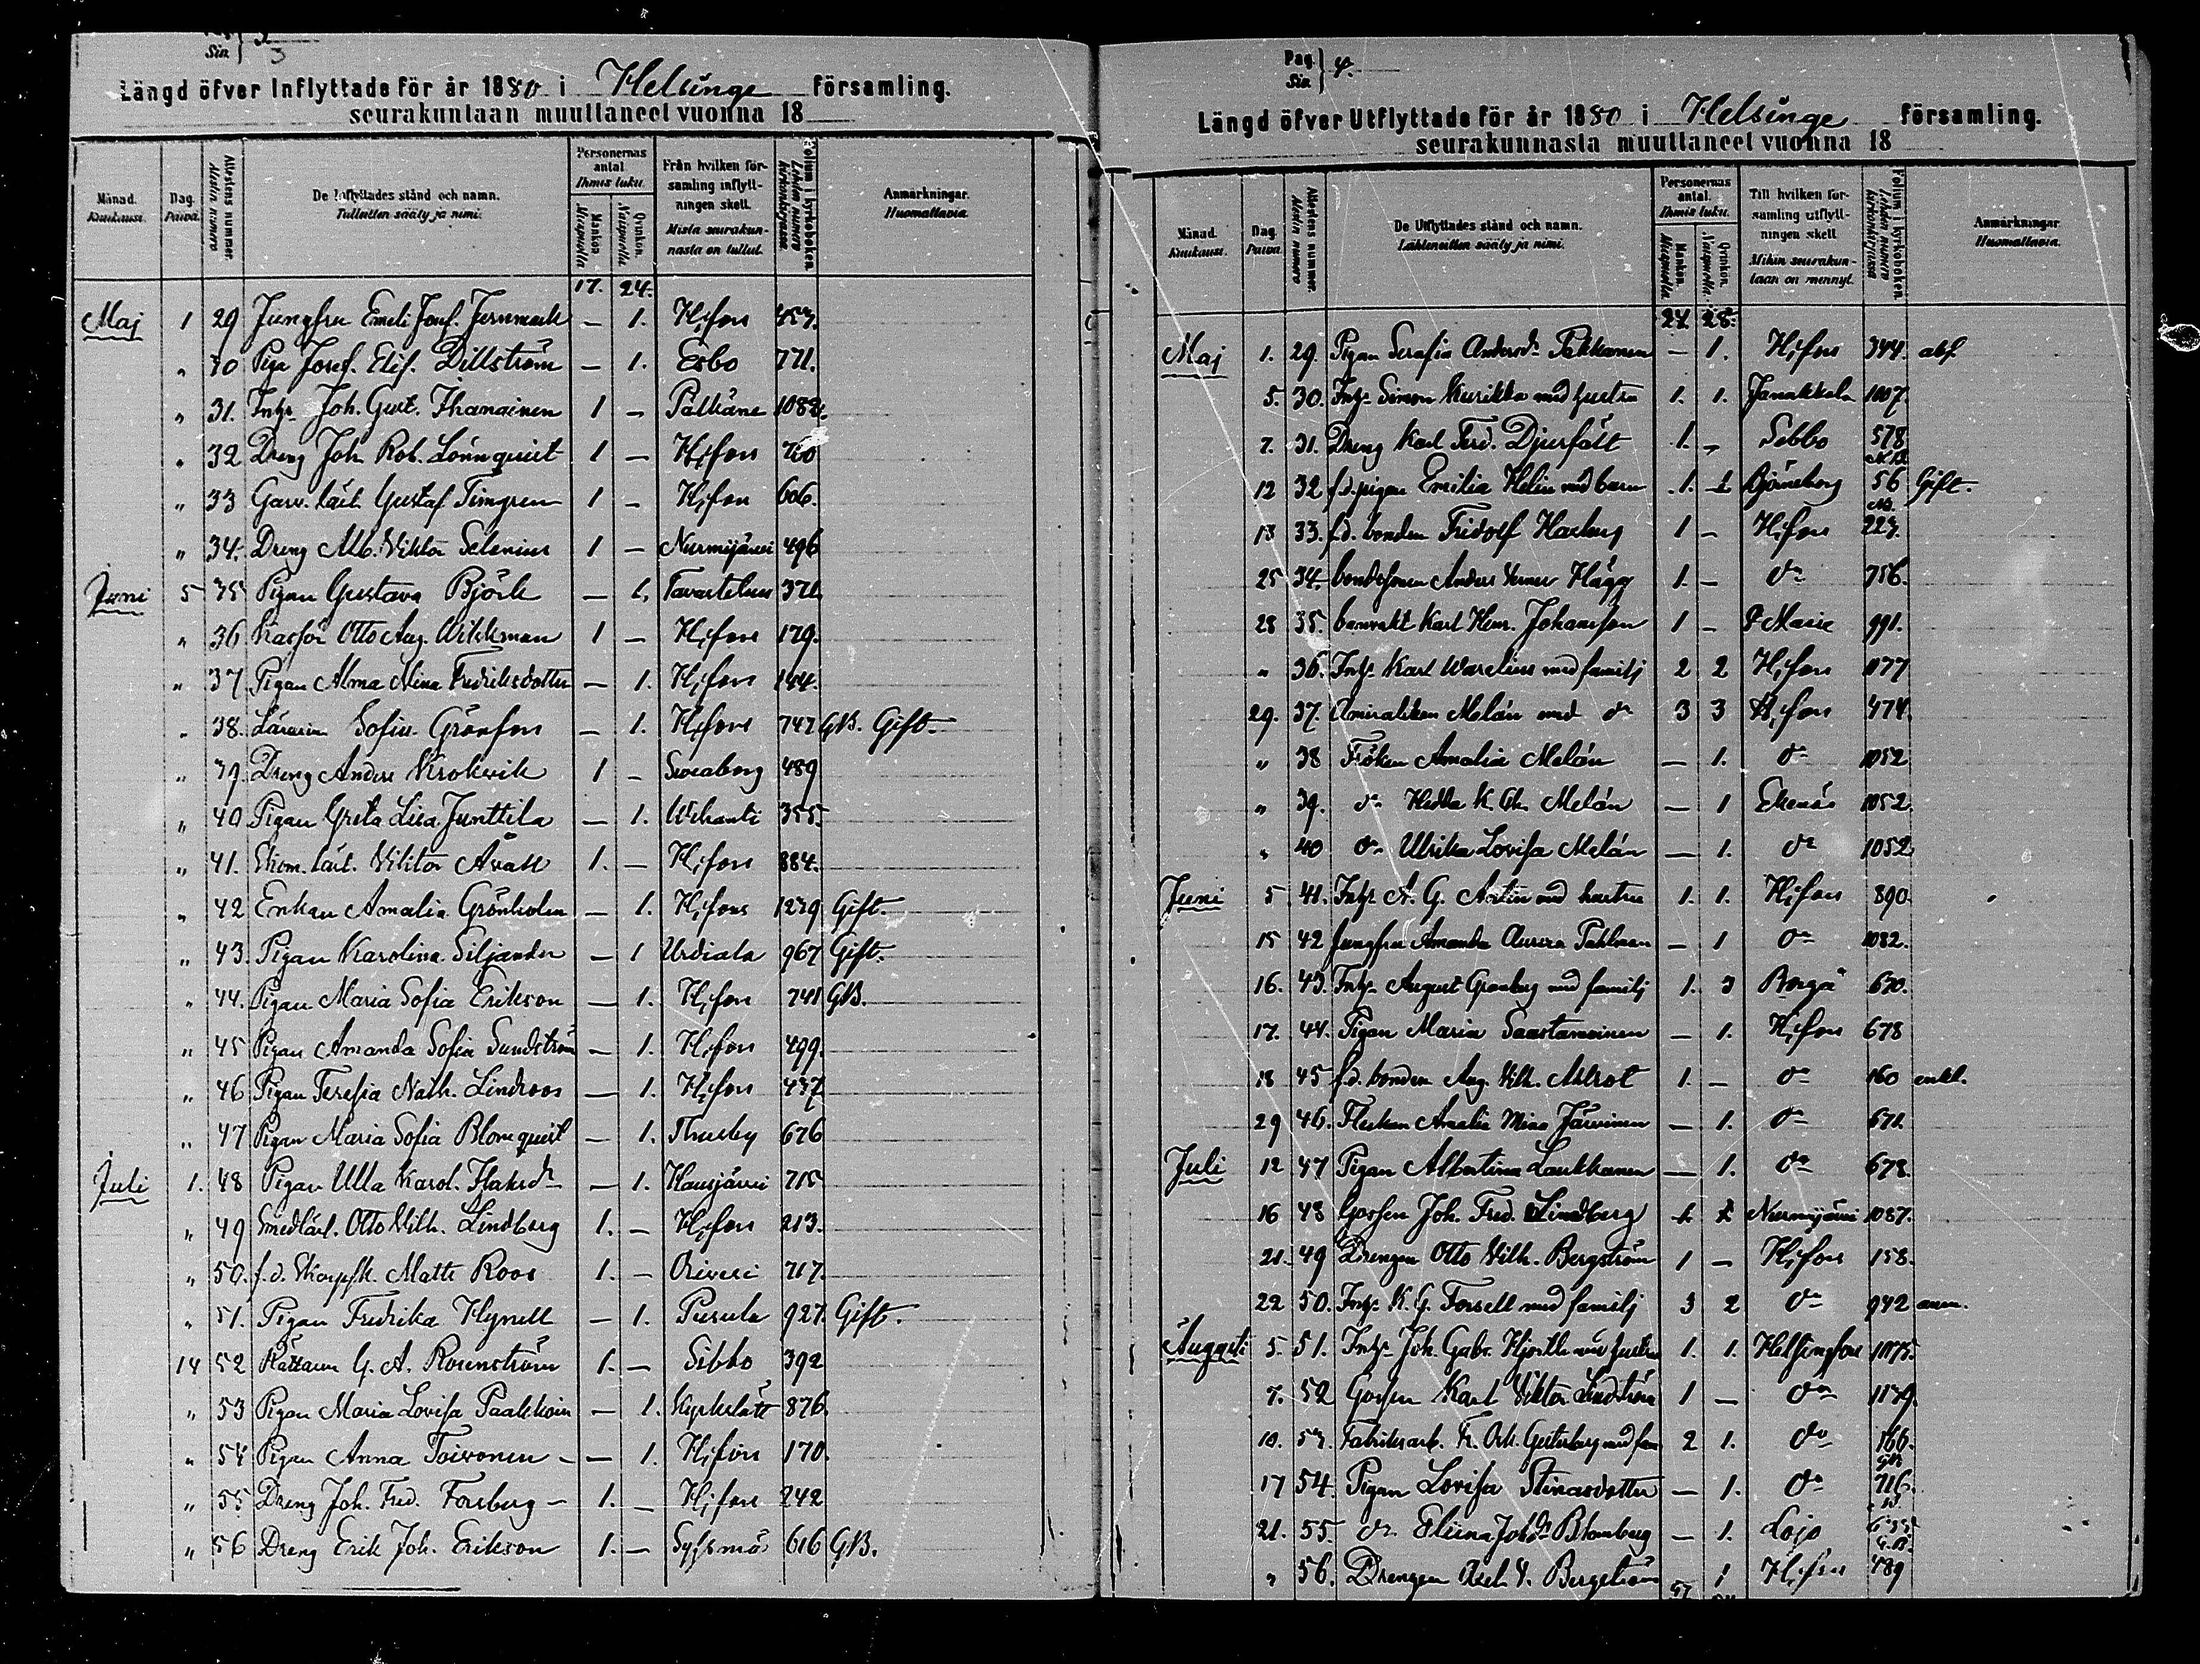 Sin. 3
Längd öfver Inflyttade för år 1880 i Helsinge församling.
seurakuntaan muuttaneet vuonna 18
Månad. Kuukausi.
Dag. Päivä.
Attestens nummer. Alestin numero
De Inflyttades stånd och namn. Tulleitten sääty ja nimi.
Personernas antal. Ihmis luku.
Mankön. Miespuolia
Qvinkön. Naispuolia
Från hvilken församling inflyttningen skett. Mista seurakunnasta on tullut.
Folium i kyrkoboken. Lehden numero kirkonkirjassa
Anmärkningar. Huomattavia.
17. 24.
Maj 1 29 Jungfru Emeli Josef. Jernmark — 1. H:fors 457.
„ 30 Piga Josef. Elis. Dillström — 1. Esbo 771.
„ 31. Inhs Joh. Gust. Ihanainen 1 — Pälkäne 1088.
„ 32 Dreng Joh. Rob. Lönnquist 1 — H:fors 700
„ 33 Garv. lärl. Gustaf Timgren 1 — H:fors 606.
„ 34. Dreng Alb. Viktor Selenius 1 — Nurmijärvi 496
Juni 5 35 Pigan Gustava Björk — 1. Tavastehus 371.
„ 36 Kassör Otto Aug. Wikkman 1 — H:fors 179.
„ 37 Pigan Alma Mina Fredriksdotter — 1. H:fors 144.
„ 38. Lärarin Sofia Grönfors — 1. H:fors 747 GB. Gift.
„ 39. Dreng Anders Krokvik 1 — Sveaborg 489
„ 40 Pigan Greta Lisa Junttila — 1. Wihanti 355.
„ 41. Skom. lärl. Viktor Avall 1. — H:fors 884.
„ 42 Enkan Amalia Grönholm — 1. H:fors 1239 Gift.
„ 43. Pigan Karolina Siljander — 1 Urdiala 967 Gift.
„ 44. Pigan Maria Sofia Erikson — 1. H:fors 741 GB.
„ 45 Pigan Amanda Sofia Sundström — 1. H:fors 499.
„ 46 Pigan Teresia Nath. Lindroos — 1. H:fors 437
„ 47 Pigan Maria Sofia Blomquist — 1. Thusby 676
Juli 1. 48 Pigan Ulla Karol. Isaksdr — 1. Hausjärvi 715
„ 49 Smedlärl. Otto Vilh. Lindberg 1. — H:fors 213.
„ 50. f.d. Matts Roos 1. — Orivesi 717.
„ 51. Pigan Fredrika Hynell — 1. Pusula 927. Gift.
14 52 Rättaren G. A. Rosenström 1. — Sibbo 392
„ 53 Pigan Maria Lovisa Paakkoin — 1. Kyrkslätt 876
„ 54 Pigan Anna Toivonen — 1. H:fors 170.
„ 55 Dreng Joh. Fred. Forsberg — 1. — H:fors 242
„ 56 Dreng Erik Joh. Erikson 1. — Sysmä 616 GB.
Pag. Sin. 4.
Längd öfver Utflyttade för år 1880 i Helsinge församling.
seurakunnasta muuttaneet vuonna 18
Månad. Kuukausi.
Dag. Päivä.
Attestens nummer. Alestin numero
De Utflyttades stånd och namn. Lähteneitten sääty ja nimi.
Personernas antal. Ihmis luku.
Mankön. Miespuolia
Qvinkön. Naispuolia.
Till hvilken församling utflyttningen skett. Mihin seurakuntaan on mennyt.
Folium i kyrkoboken. Lehden numero kirkonkirjassa
Anmärkningar. Huomattavia.
27. 28.
Maj 1. 29. Pigan Serafia Andersdr Pakkanen — 1. H:fors 344. abs.
5. 30. Inhs Simon Kurikka med hustru 1. 1. Janakkala 1007.
7. 31. Dreng Karl Ferd. Djurfält 1. — Sibbo 578
12 32 f.d. pigan Emilia Helin med barn 1. 1 Björneborg 56 Gift.
13 33. f.d. bonden Fridolf Haxberg 1 — H:fors 223.
25 34. bondesonen Anders Verner Hägg 1. — do 756.
28 35. banvakt Karl Henr. Johansson 1 — S:t Marie 991.
„ 36. Inhs Karl Warelius med familj 2 2 H:fors 1177
29. 37. Amiralskan Melán med do 3 3 H:fors 474.
„ 38 Fröken Amalia Melán — 1. do 1052
„ 39. do Hedda K. Melán — 1 Ekenäs 1052
„ 40 do Ulrika Lovisa Melán — 1. do 1052
Juni 5 41. Inhs A. G. Artin med hustru 1. 1. H:fors 890.
15 42 Jungfru Amanda Aurora Pahlman — 1 do 1082.
16. 43. Inhs August Granberg med familj 1. 3 Borgå 670.
17. 44. Pigan Maria Saastamoinen — 1. H:fors 678
18 45 f.d. bonden Aug. Vilh. Alrot 1. — do 160 enkl.
29 46. Flickan Amalia Mina Järvinen — 1. do 671.
Juli 12 47 Pigan Albertina Laukkanen — 1. do 678.
16 48 Gossen Joh. Fred. Lindberg 1. 1 Nurmijärvi 1087.
21. 49 Drengen Otto Vilh. Bergström 1 — H:fors 158.
22 50. Inhs K. G. Forsell med familj 3 2 do 942 anm.
Augusti 5. 51. Inhs Joh. Gabr. Hjorth med hustru 1. 1. Helsingfors 1175.
7. 52 Gossen Karl Viktor Lindström 1 — do 1179.
10. 53. Fabriksarb. K. Osk. Gusterberg med fam 2 1. do 166.
17 54. Pigan Lovisa Stinasdotter — 1. do 716.
21. 55. do Elina Johdr Blomberg — 1. Lojo
„ 56. Drengen Axel V. Bergström 1 H:fors 489